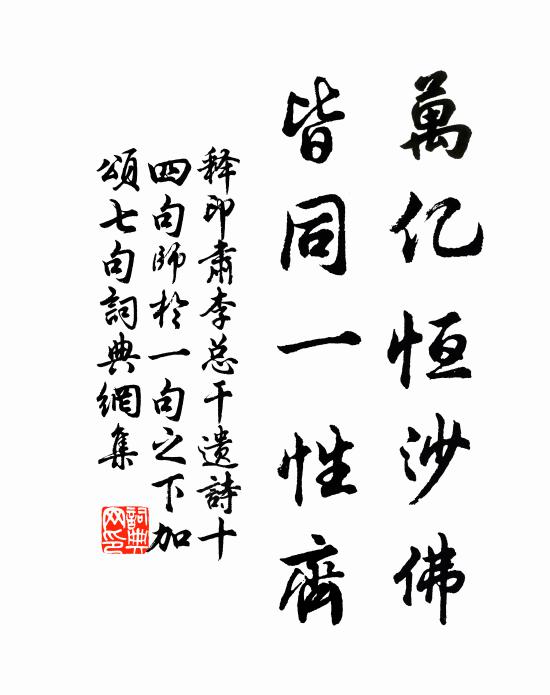 萬亿恒沙佛
皆同一性齊
释印肅李总干遗詩十
四句師於一句之下加
頌七句詞典網集
詞典網印